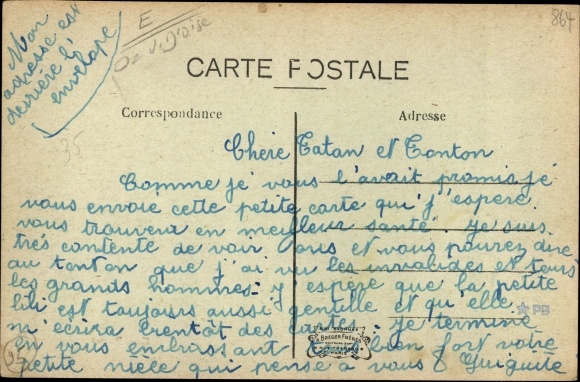 Mon
adresse est
derrière l'
enveloppe
E
Oz V. D'Oise
864
CARTE POSTALE
Correspondance
Adresse
35
Chere Tatan et Tonton
Comme je vous l'avait promis je
vous envoie cette petite carte qui j'espere.
vous trouvera en meilleur santé. Je suis
très contente de voir Paris et vous pourez dire
au tonton que j'ai vu les invalides et tous
les grands hommes. j'espère que la petite
lili est toujours aussi gentille et qu'elle
m'écrira bientôt des cartes. je termine
en vous embrassant bien fort votre
petite nièce qui pense a vous Guiguite
BAEGER FRÈRES
PB
95